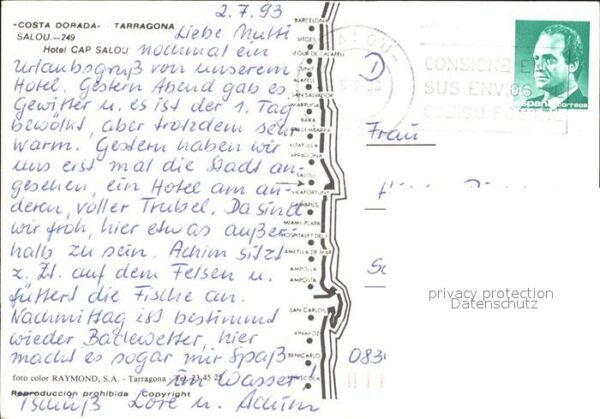 2.7.93
«COSTA DORADA» - TARRAGONA
SALOU.—249
Hotel CAP SALOU
Liebe Mutti
nochmal ein
Urlaubsgruß von unserem
Hotel. Gestern Abend gab es
Gewitter u. es ist der 1. Tag
bewölkt, aber trotzdem sehr
warm. Gestern haben wir
uns erst mal die Stadt an-
gesehen, ein Hotel am an-
deren, voller Trubel. Da sind
wir froh, hier etwas außer-
halb zu sein. Achim sitzt
z. Zt. auf dem Felsen u.
füttert die Fische an.
Nachmittag ist bestimmt
wieder Badewetter, hier
macht es sogar mir Spaß
im Wasser!
Tschüß Lore u. Achim
foto color RAYMOND, S.A. - Tarragona - Tel. 23 45 25
Reproducción prohibida Copyright
BARCELONA
SITGES
CALAFELL
SAN SALVADOR
BARA
ALTAFULLA
TARRAGONA
SALOU
VILAFORTUNY
CAMBRILS
MIAMI-PLAYA
HOSPITALET DEL
AMETLLA DE MAR
AMPOLLA
AMPOSTA
SAN CARLOS
VINAROZ
BENICARLO
PEÑISCOLA
SALOU
CONSIGNE E
SUS ENVIOS
CODIGO PO
España CORREOS
Frau
privacy protection
Datenschutz